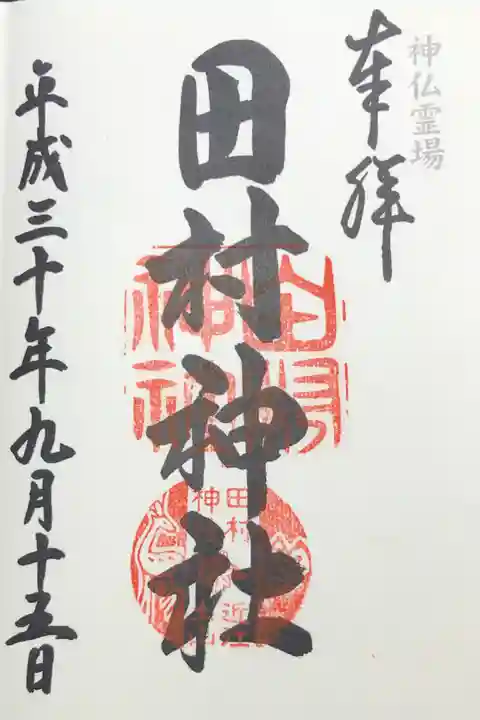 神仏霊場
奉拝
田村神社
田村神社
田村
神
近江
平成三十年九月十五日